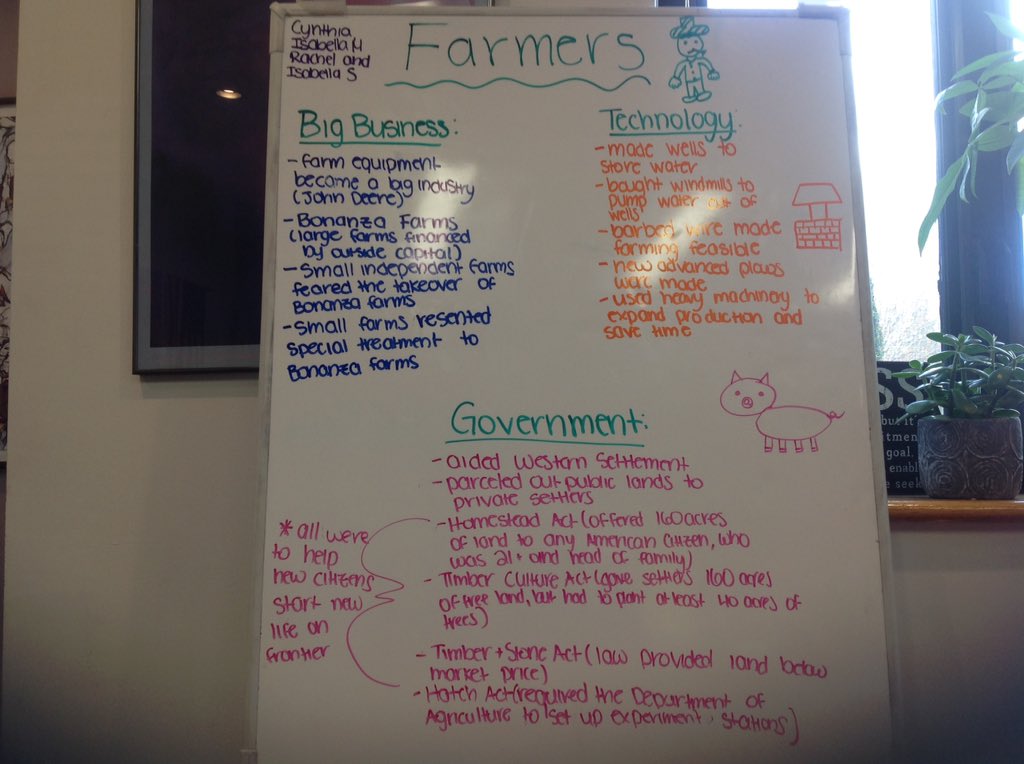 Cynthia
Isabella M
Rachel and
Isabella S
Farmers
Big Business:
- farm equipment
become a big industry
(John Deere)
- Bonanza Farms
(large farms financed
by outside capital)
- Small independent farms
feared the takeover of
Bonanza farms
- Small farms resented
special treatment to
Bonanza farms
Technology:
- made wells to
store water
- bought windmills to
pump water out of
wells
- barbed wire made
farming feasible
- new advanced plows
were made
- used heavy machinery to
expand production and
save time
Government:
- aided Western Settlement
- parceled out public lands to
private settlers
- Homestead Act (offered 160 acres
of land to any American citizen, who
was 21+ and head of family)
- Timber Culture Act (gave settlers 160 acres
of free land, but had to plant at least 40 acres of
trees)
- Timber + Stone Act (law provided land below
market price)
- Hatch Act (required the Department of
Agriculture to set up experiment stations)
* all were
to help
new citizens
start new
life on
frontier
SS
but it
tmen
goal.
enabl
e seek